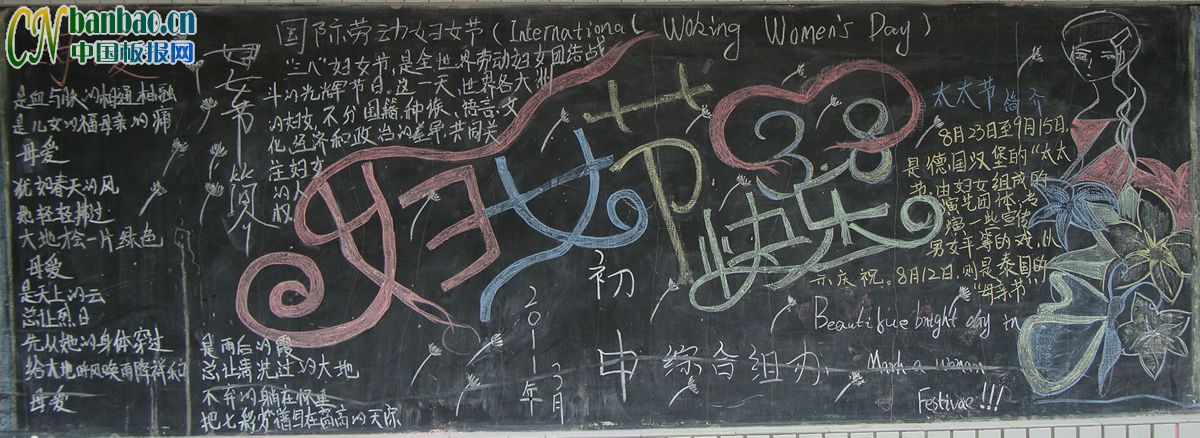 CN banbao.cn
中国板报网
母爱
是血与脉的相通相融
是儿女的福母亲的痛
母爱
犹如春天的风
她轻轻拂过
大地才会一片绿色
母爱
是天上的云
总让烈日
先从她的身体穿过
给大地呼风唤雨降祥和
母爱
是雨后的霞
总让清洗过的大地
把七彩
在高高的天际
妇女节简介
国际劳动妇女节(International Woking Women's Day)
"三八"妇女节,是全世界劳动妇女团结战
斗的光辉节日。这一天,世界各大洲
的妇女,不分国籍、种族、语言、文
化、经济和政治的差异,共同关
注妇女
的人
权
妇女节
3.8
快乐
初中综合组办
2011年3月
太太节简介
8月23日至9月15日,
是德国汉堡的"太太
节,由妇女组成的
演艺团体,专
演一些宣传
男女平等的戏,以
示庆祝。8月12日,则是泰国的
"母亲节"
Beautifue bright day in
March a woman
Festivae!!!